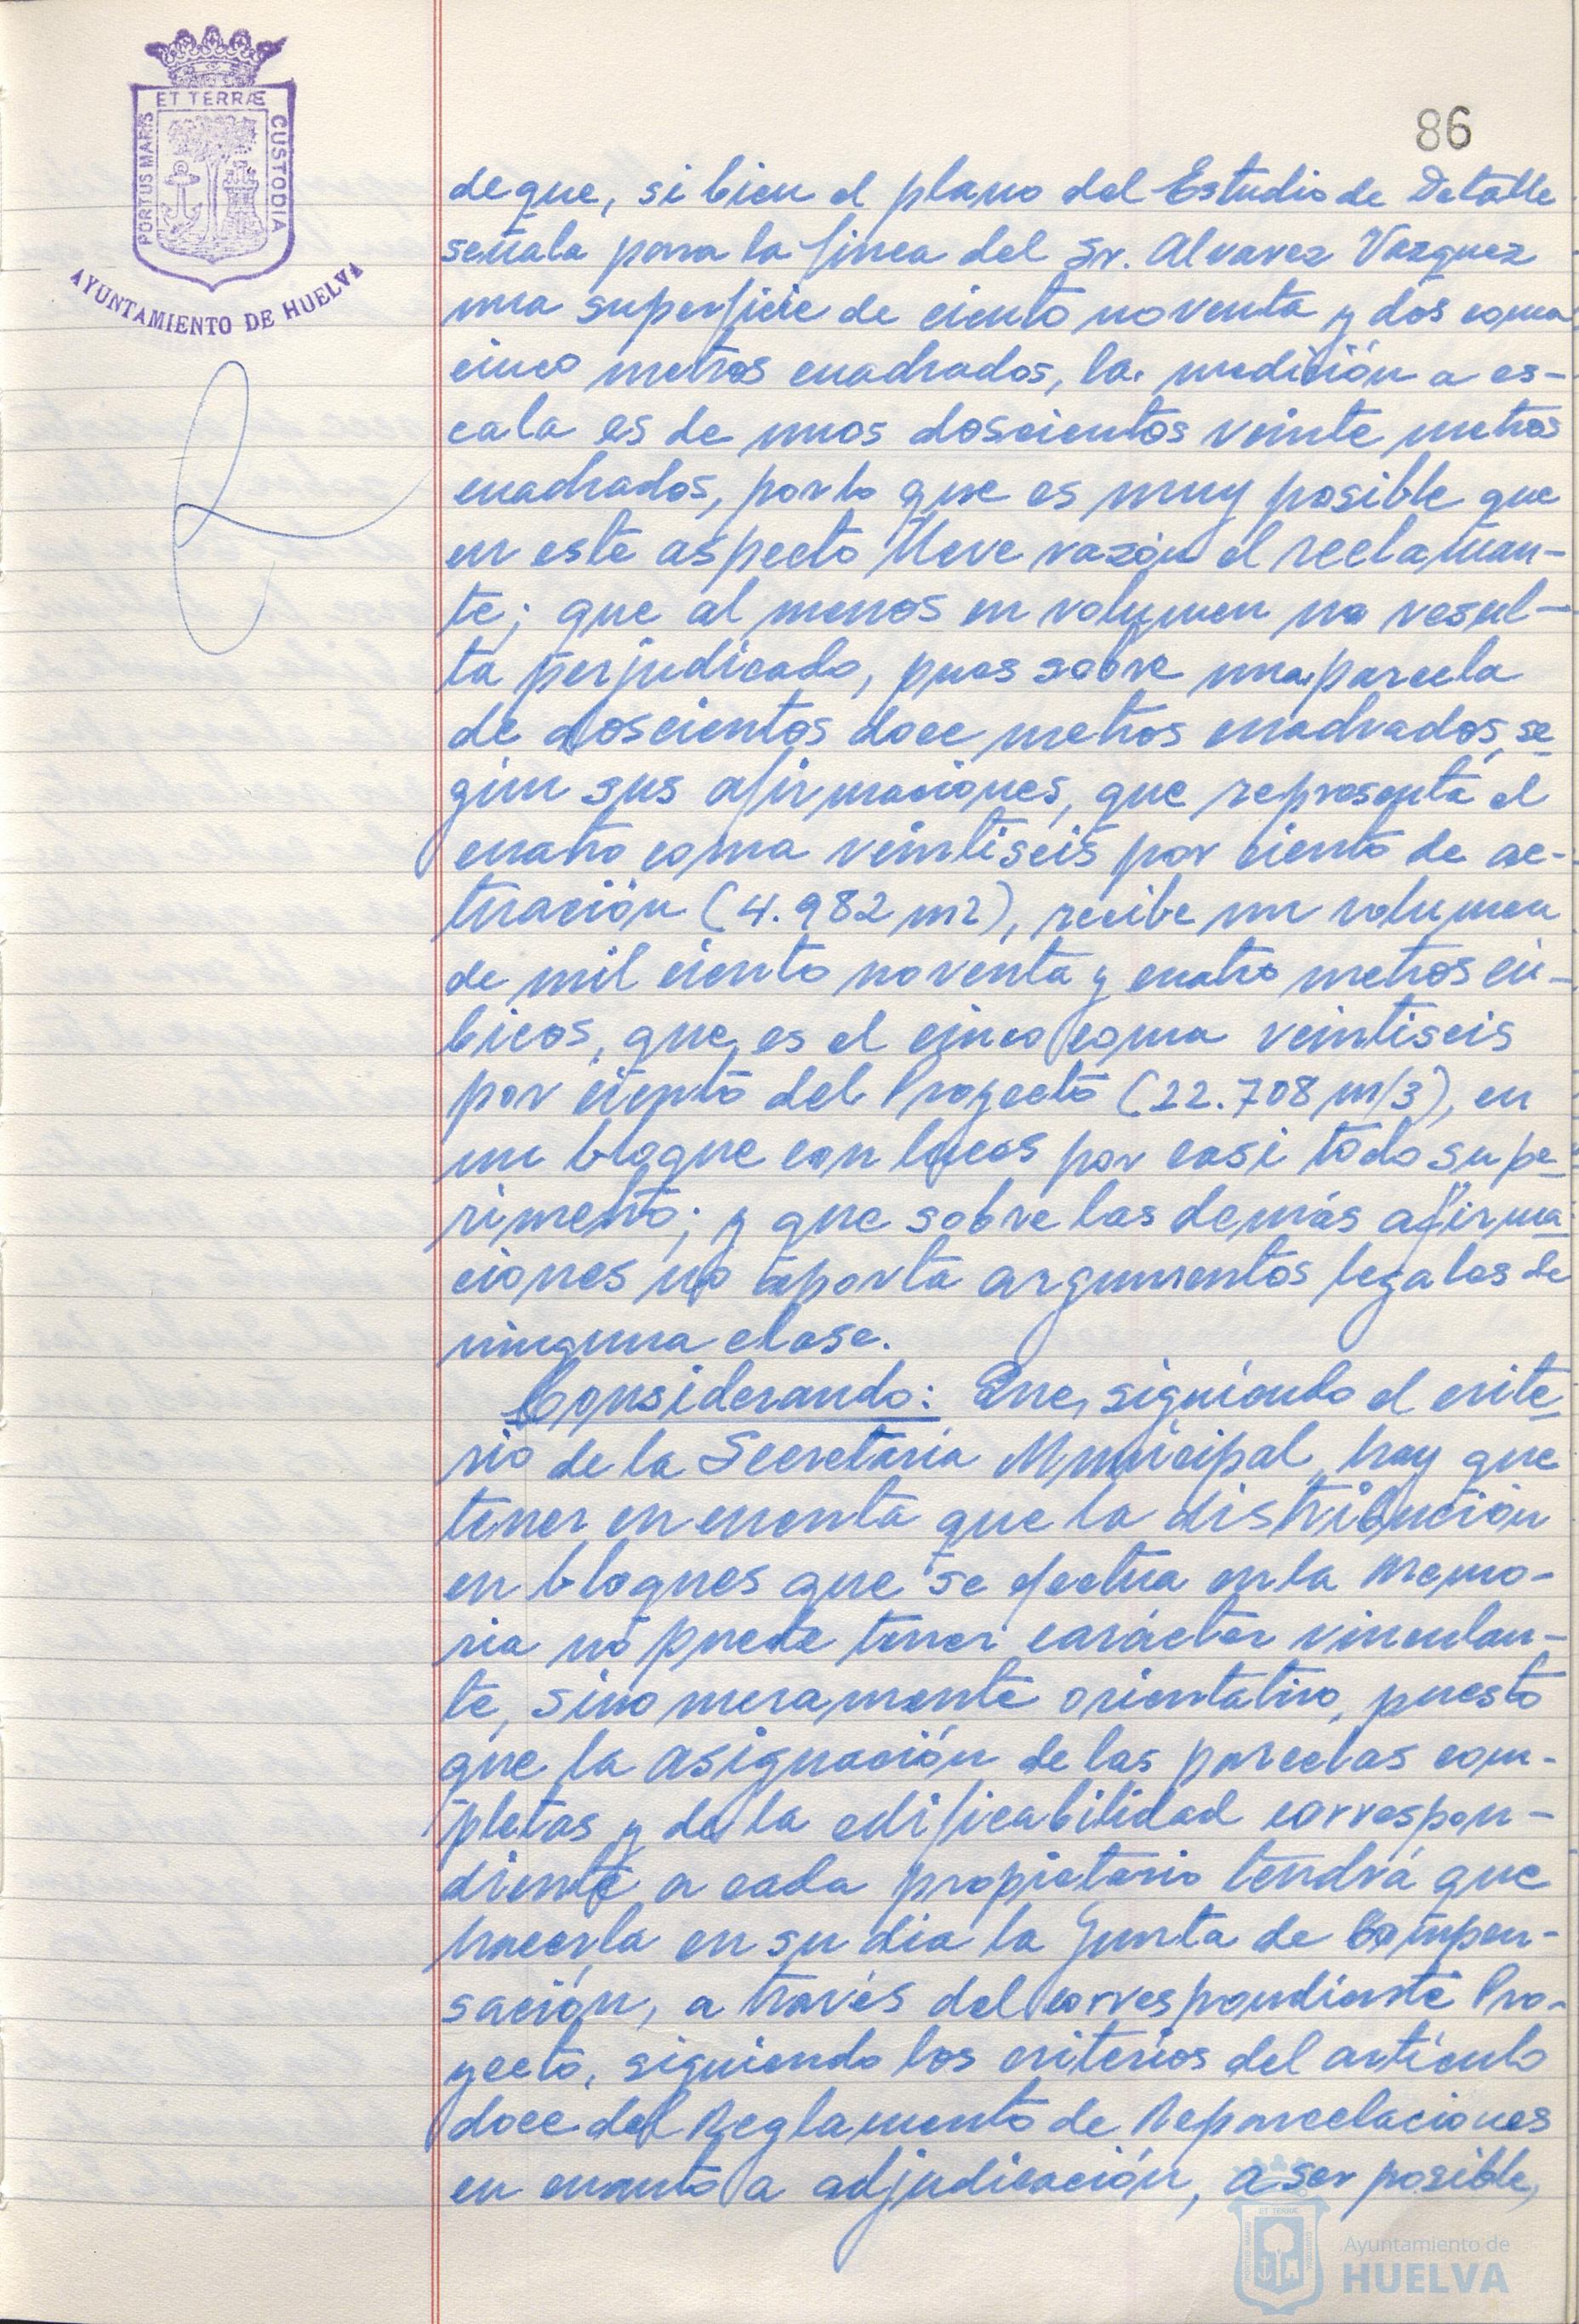 ET TERRÆ
PORTUS MARIS
CUSTODIA
AYUNTAMIENTO DE HUELVA
86
de que, si bien el plano del Estudio de Detalle
señala para la finca del Sr. Alvarez Vazquez
una superficie de ciento noventa y dos coma
cinco metros cuadrados, la medición a es-
cala es de unos doscientos veinte metros
cuadrados, por lo que es muy posible que
en este aspecto lleve razón el reclaman-
te; que al menos en volumen no resul-
ta perjudicado, pues sobre una parcela
de doscientos doce metros cuadrados, se
gún sus afirmaciones, que representa el
cuatro coma veintiseis por ciento de ac-
tuación (4.982 m2), recibe un volumen
de mil ciento noventa y cuatro metros cú-
bicos, que es el cinco coma veintiseis
por ciento del Proyecto (22.708 m/3), en
un bloque con luces por casi todo su pe
rimetro; y que sobre las demás afirma-
ciones no aporta argumentos legales de
ninguna clase.
Considerando: Que, siguiendo el crite
rio de la Secretaría Municipal, hay que
tener en cuenta que la distribución
en bloques que se efectua en la Memo-
ria no puede tener carácter vinculan-
te, sino meramente orientativo, puesto
que la asignación de las parcelas com-
pletas y de la edificabilidad correspon-
diente a cada propietario tendrá que
hacerla en su dia la Junta de Compen-
sación, a través del correspondiente Pro-
yecto, siguiendo los criterios del artículo
doce del Reglamento de Reparcelaciones
en cuanto a adjudicación, a ser posible,
Ayuntamiento de
HUELVA